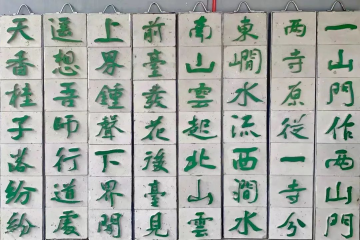 一山門作兩山門
兩寺原從一寺分
東澗水流西澗水
南山雲起北山雲
前臺花發後臺見
上界鐘聲下界聞
遥想吾師行道處
天香桂子落紛紛